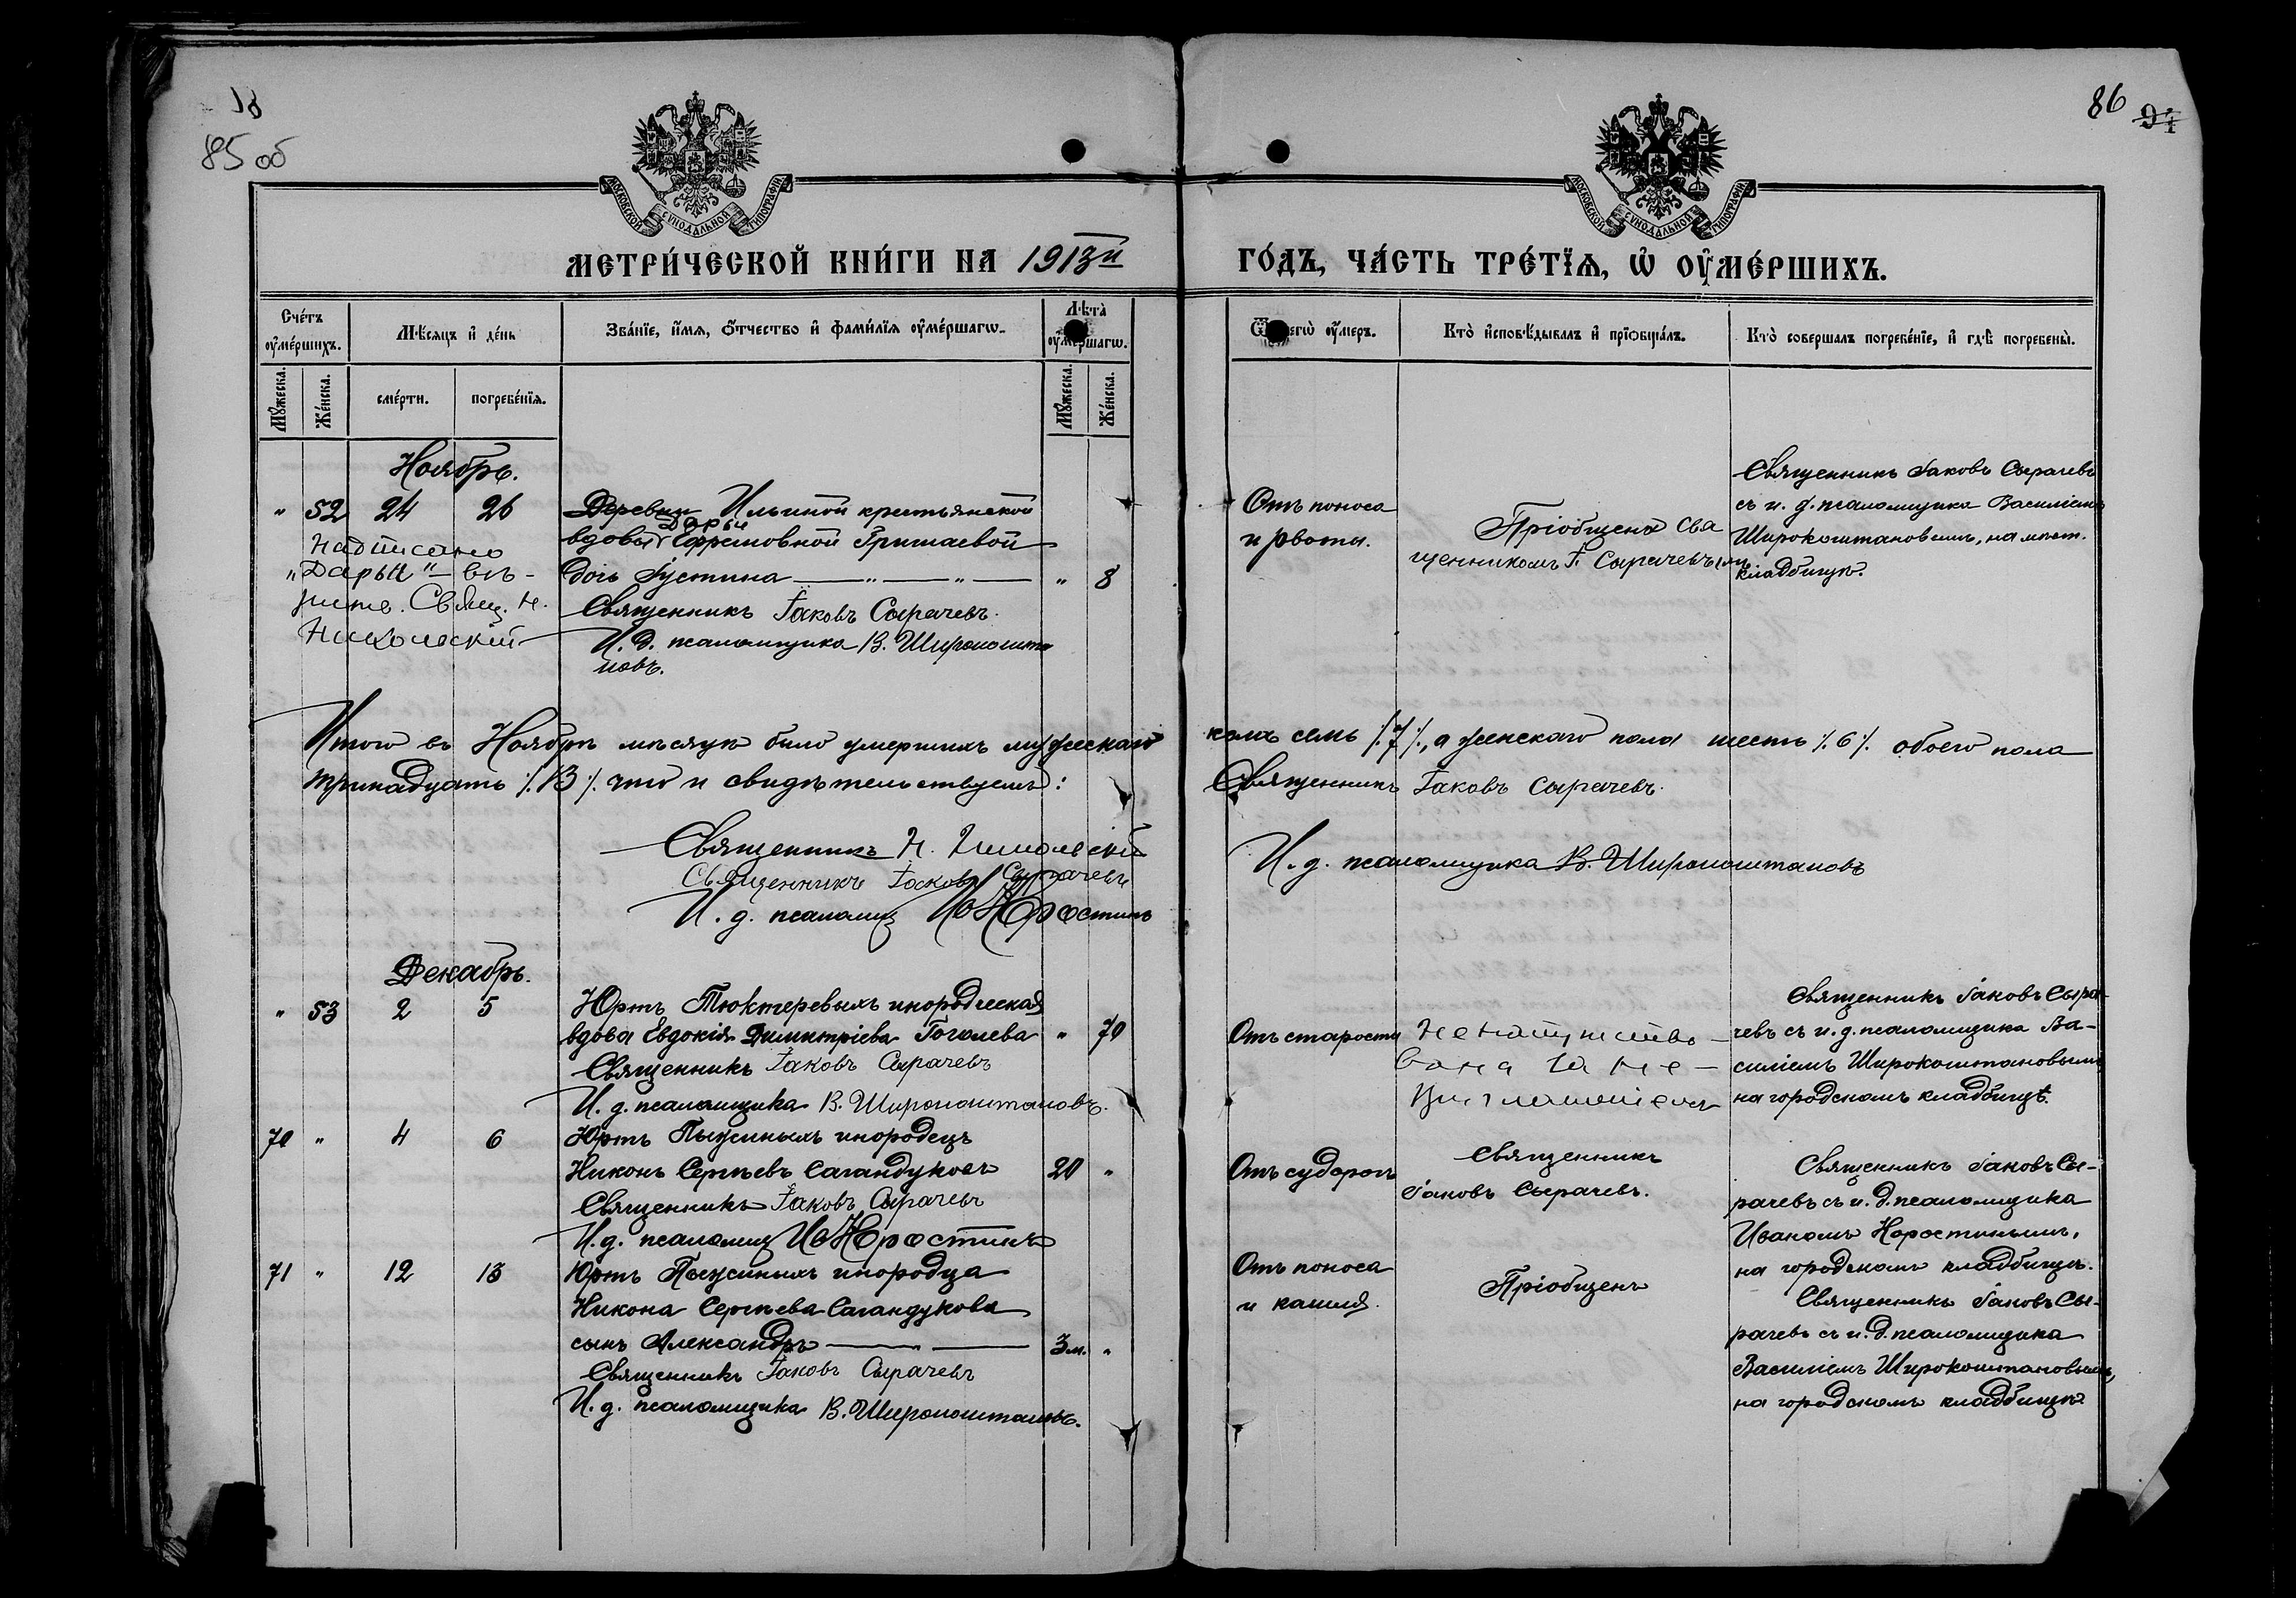 18
85 об
86
94
МОСКОВСКОЙ СѴНОДАЛЬНОЙ ТИПОГРАФІИ
МОСКОВСКОЙ СѴНОДАЛЬНОЙ ТИПОГРАФІИ
МЕТРИ́ЧЕСКОЙ КНИ́ГИ НА 1913й
ГО́ДЪ, ЧА́СТЬ ТРЕ́ТЇѦ, Ѡ ОУМЕ́РШИХЪ.
Сче́тъ оуме́ршихъ.
Мѣ́сяцъ и де́нь
Зва́нїе, и́мѧ, о́тчество и фами́лїѧ оуме́ршагѡ.
Лѣта̀ оуме́ршагѡ.
Ѿ чегѡ̀ оу́меръ.
Кто̀ исповѣ́дывалъ и прїѡбща́лъ.
Кто̀ соверша́лъ погребе́нїе, и гдѣ̀ погребены̀.
Мꙋ́жеска.
Же́нска.
сме́рти.
погребе́нїѧ.
Мꙋ́жеска.
Же́нска.
Ноябрь.
" 52 24 26 Деревни Ильиной крестьянской
Дарьи
вдовы Ефремовной Гришаевой
дочь Іустина — " — " — " 8
Священникъ Іаковъ Сырачевъ.
И. д. псаломщика В. Широкошта
новъ.
Надписано
"Дарьи" — вѣ-
рно. Свящ. Н.
Никольскій
Отъ поноса
и рвоты.
Пріобщена Свя
щенникомъ І. Сырачевымъ
Священникъ Іаковъ Сырачевъ
съ и. д. псаломщика Василіемъ
Широкоштановымъ, на мѣст.
кладбищѣ.
Итого въ Ноябрѣ мѣсяцѣ было умершихъ мужескаго
пола семь ⁒7⁒, а женскаго пола шесть ⁒6⁒. обоего пола
тринадцать ⁒13⁒. что и свидѣтельствуемъ:
Священникъ Іаковъ Сырачевъ.
Священникъ Н. Никольскій
Священникъ Іаковъ Сырачевъ
И. д. псаломщ Ив Коростинъ
И. д. псаломщика В. Широкоштановъ
Декабрь.
" 53 2 5 Юртъ Тюктеревыхъ инородческая
вдова Евдокія Димитріева Гоголева " 70
Священникъ Іаковъ Сырачевъ
И. д. псаломщика В. Широкоштановъ.
Отъ старости
Не напутство-
вана за не-
приглашеніемъ
Священникъ Іаковъ Сыра-
чевъ съ и. д. псаломщика Ва-
силіемъ Широкоштановымъ
на городскомъ кладбищѣ.
70 " 4 6 Юртъ Пыжиныхъ инородецъ
Никонъ Сергѣевъ Сагандуковъ 20 "
Священникъ Іаковъ Сырачевъ
И. д. псаломщ Ив Коростинъ
Отъ судорогъ
Священникъ
Іаковъ Сырачевъ.
Священникъ Іаковъ Сы-
рачевъ съ и. д. псаломщика
Иваномъ Коростинымъ,
на городскомъ кладбищѣ.
71 " 12 13 Юртъ Пыжиныхъ инородца
Никона Сергѣева Сагандукова
сынъ Александръ — " — 3 м. "
Священникъ Іаковъ Сырачевъ
И. д. псаломщика В. Широкоштановъ.
Отъ поноса
и кашля.
Пріобщенъ
Священникъ Іаковъ Сы-
рачевъ съ и. д. псаломщика
Василіемъ Широкоштановымъ,
на городскомъ кладбищѣ